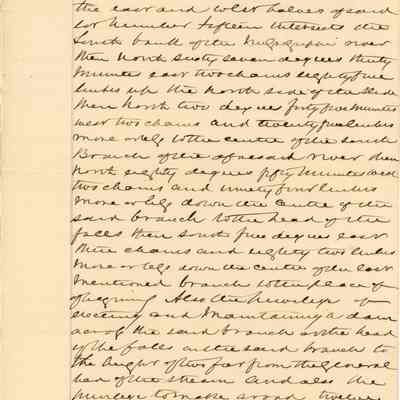 the east and West halves of said
Lot number fifteen intersects the
South bank of the river
then North Sixty seven degrees thirty
minutes east two chains eighty five
links up the North side of the Slide
then North two degrees forty five minutes
west two chains and twenty five links
more or less to the centre of the South
Branch of the aforesaid river then
North eighty degrees fifty minutes west
two chains and ninety four links
more or less down the centre of the
said branch to the head of the
falls then South five degrees east
Nine chains and eighty two links
more or less down the centre of the last
mentioned branch to the place of
beginning Also the privilege of
erecting and maintaining a dam
across the said branch at the head
of the falls on the said branch to
the height of two feet from the general
bed of the stream and also the
privilege to make a road twelve